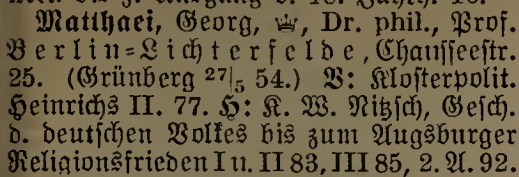 Matthaei, Georg, ♕, Dr. phil., Prof.
Berlin=Lichterfelde, Chausseestr.
25. (Grünberg 27|5 54.) V: Klosterpolit.
Heinrichs II. 77. H: K. W. Nitzsch, Gesch.
d. deutschen Volkes bis zum Augsburger
Religionsfrieden I u. II 83, III 85, 2. A. 92.